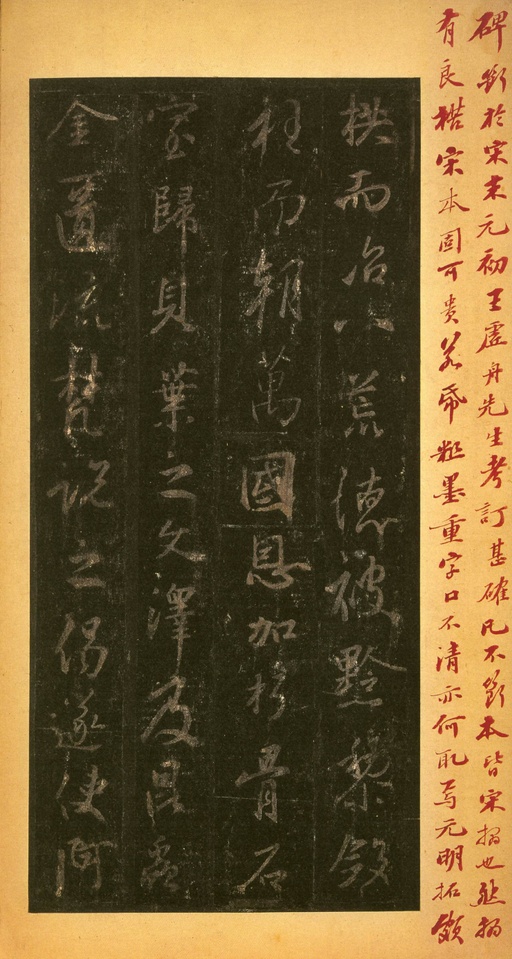 碑斷於宋末元初王虛舟先生考訂甚確凡不斷本皆宋搨也然搨
有良楛宋本固可貴若帋粗墨重字口不清亦何取焉元明拓頗
拱而治八荒德被黔黎斂
衽而朝萬國恩加朽骨石
室歸貝葉之文澤及昆蟲
金匱流梵說之偈遂使阿